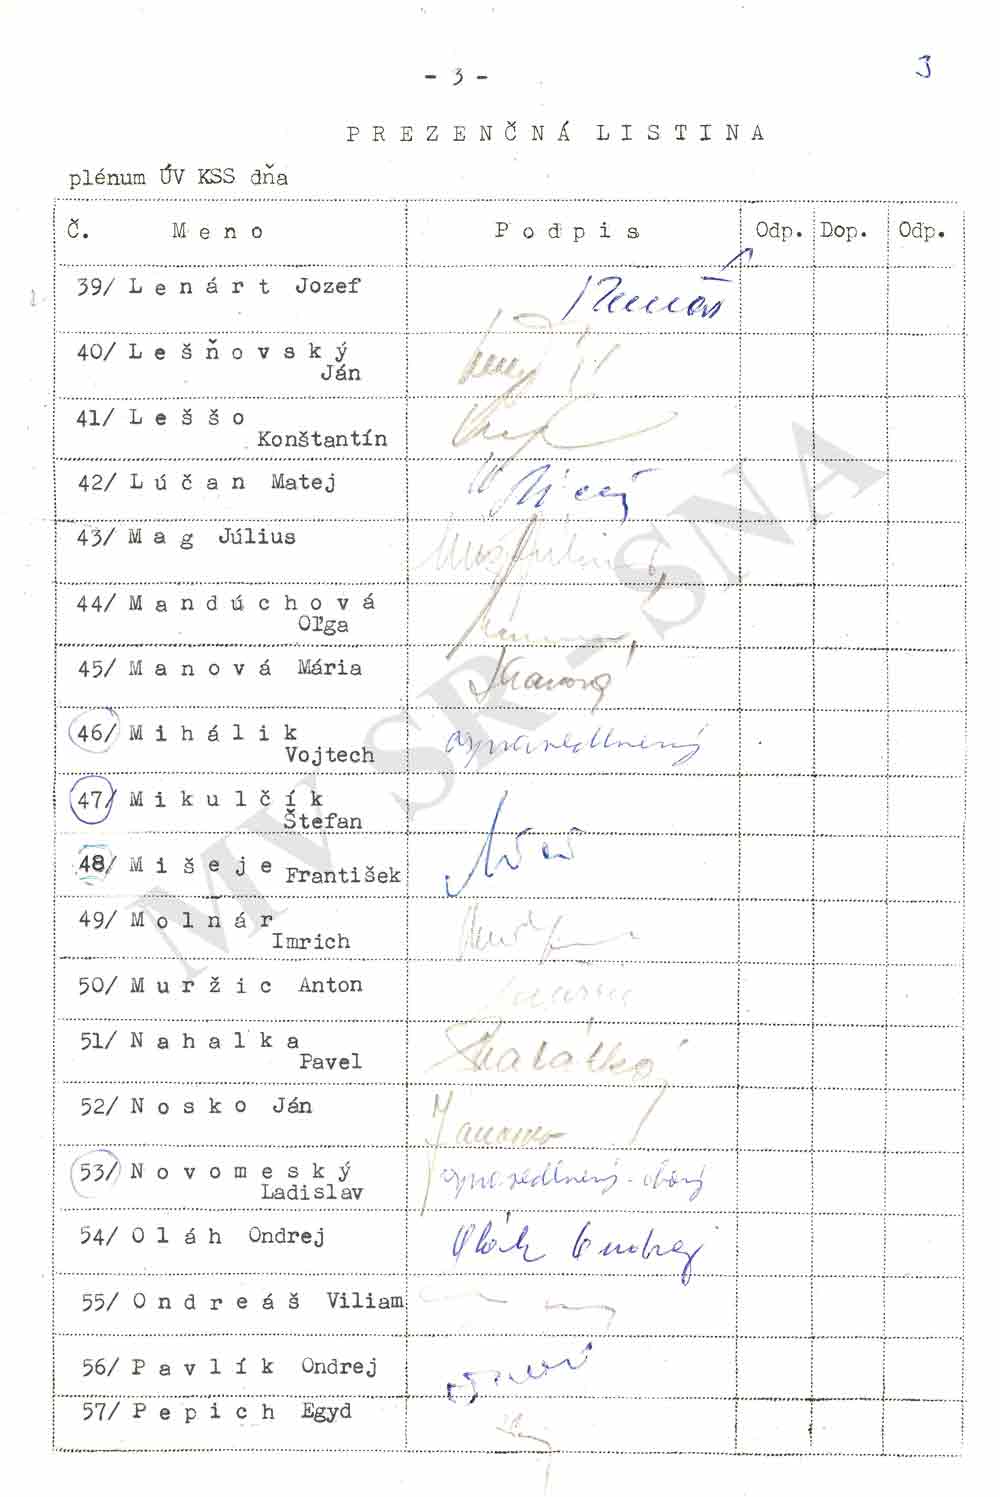 - 3 -
3
PREZENČNÁ LISTINA
plénum ÚV KSS dňa
Č. Meno Podpis Odp. Dop. Odp.
39/ Lenárt Jozef
40/ Lešňovský
Ján
41/ Leššo
Konštantín
42/ Lúčan Matej
43/ Mag Július
44/ Mandúchová
Oľga
45/ Manová Mária Manová
46/ Mihálik
Vojtech
ospravedlnený
47/ Mikulčík
Štefan
48/ Mišeje František
49/ Molnár
Imrich
50/ Muržic Anton
51/ Nahalka
Pavel
52/ Nosko Ján
53/ Novomeský
Ladislav
ospravedlnený - chorý
54/ Oláh Ondrej Oláh Ondrej
55/ Ondreáš Viliam
56/ Pavlík Ondrej
57/ Pepich Egyd
MV SR - SNA